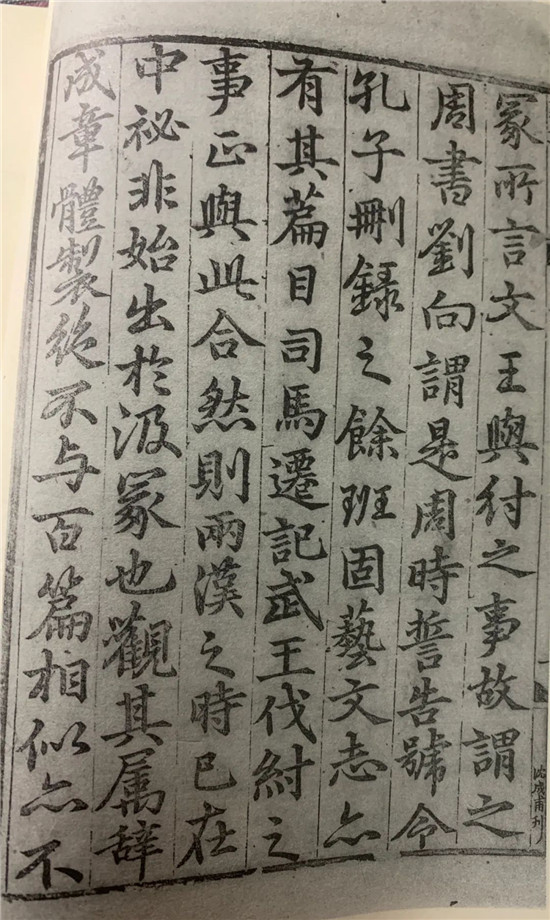 冢所言文王與紂之事故謂之
周書劉向謂是周時誓告號令
孔子刪録之餘班固藝文志亦
有其篇目司馬遷記武王伐紂之
事正與此合然則兩漢之時已在
中祕非始出於汲冢也觀其属辞
成章體製絶不与百篇相似亦不